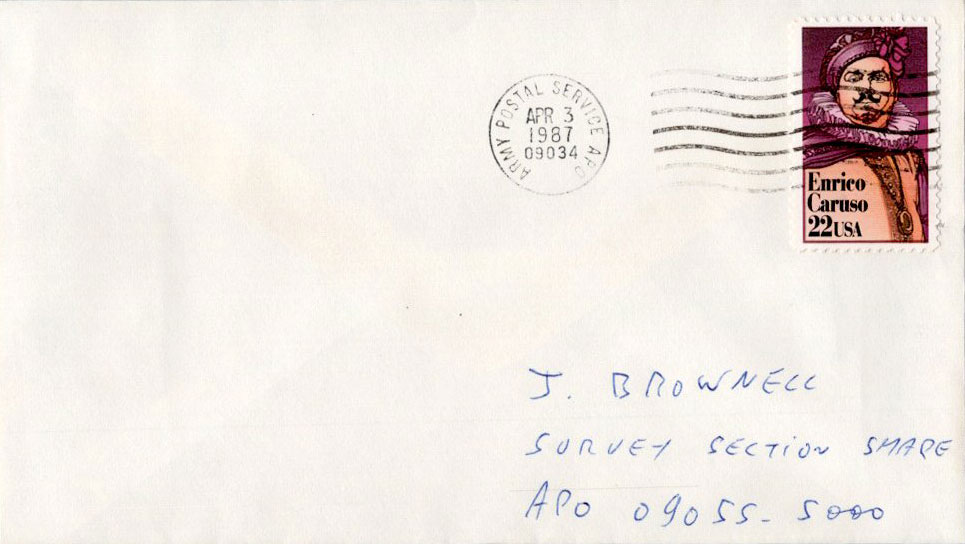 ARMY POSTAL SERVICE APO
APR 3
1987
09034
Enrico
Caruso
22USA
J. BROWNELL
SURVEY SECTION SHAPE
APO 09055-5000